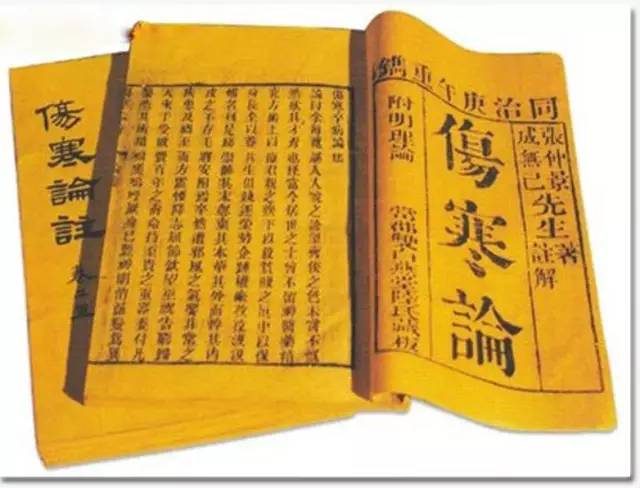 同治庚午重鐫
張仲景
成無己
先生
著
註解
傷寒論
附明理論 常郡雙白燕堂陸氏藏板
傷寒卒病論集
論曰余每覽越人入虢之診望齊侯之色未嘗不慨
然歎其才秀也怪當今居世之士曾不留神醫藥精
究方術上以療君親之疾下以救貧賤之厄中以保
身長全以養其生但競逐榮勢企踵權豪孜孜汲汲
惟名利是務崇飾其末忽棄其本華其外而悴其內
皮之不存毛將安附焉卒然遭邪風之氣嬰非常之
疾患及禍至而方震慄降志屈節欽望巫祝告窮歸
天束手受敗齎百年之壽命持至貴之重器委付凡
醫恣其所措咄嗟嗚呼厥身已斃神明消滅變為異
傷寒論註